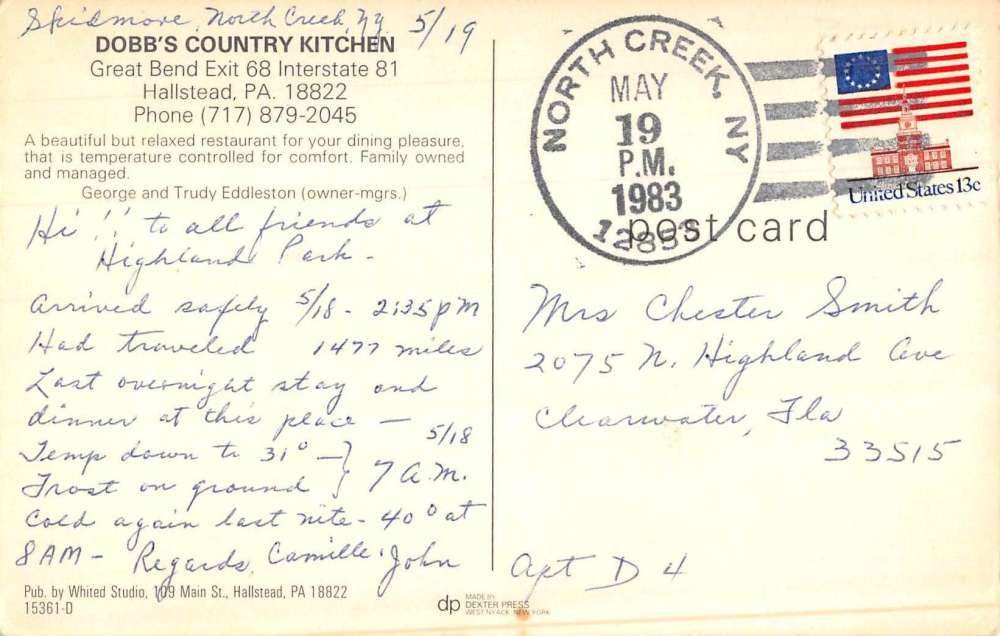 Skidmore, North Creek, Ny 5/19
DOBB'S COUNTRY KITCHEN
Great Bend Exit 68 Interstate 81
Hallstead, PA. 18822
Phone (717) 879-2045
A beautiful but relaxed restaurant for your dining pleasure,
that is temperature controlled for comfort. Family owned
and managed.
George and Trudy Eddleston (owner-mgrs.)
Hi!! to all friends at
Highland Park -
Arrived safely 5/18 - 2:35 pM
Had traveled 1477 miles
Last overnight stay and
dinner at this place -
Temp down to 31° - } 5/18
Frost on ground } 7 A.M.
Cold again last nite - 40° at
8 AM - Regards, Camille & John
Pub. by Whited Studio, 109 Main St., Hallstead, PA 18822
15361-D
dp MADE BY
DEXTER PRESS
WEST NYACK, NEW YORK
NORTH CREEK, NY
MAY
19
P.M.
1983
12853
United States 13c
post card
Mrs Chester Smith
2075 N. Highland Ave
Clearwater, Fla
33515
Apt D 4